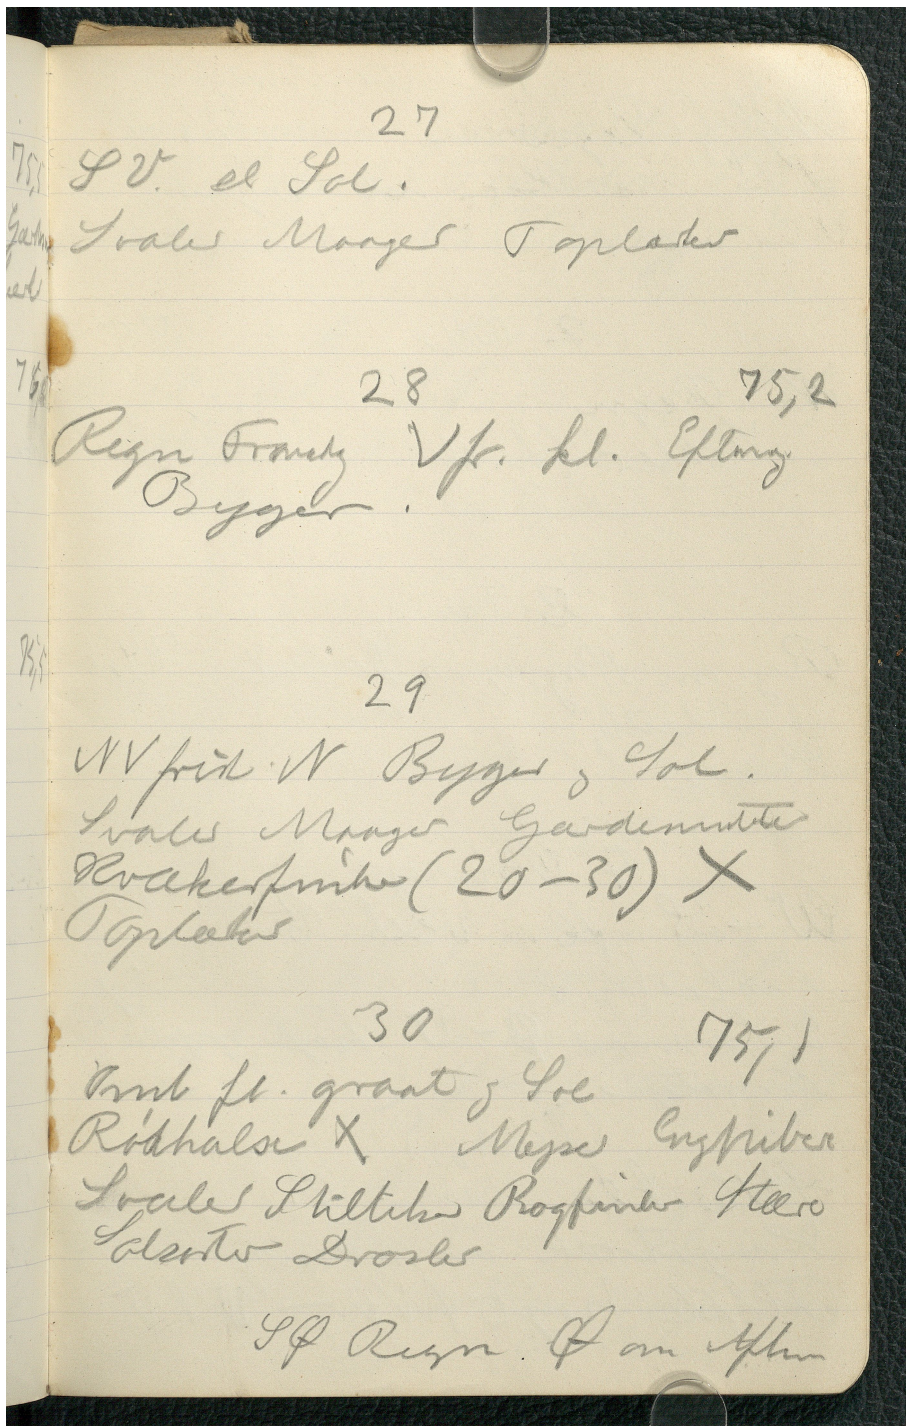 27
SV. el Sol.
Svaler Maager Toplærker
28 75,2
Regn V fr. kl. Efterm.
Byger.
29
NV frisk N Byger & Sol.
Svaler Maager Gærdesmutte
Kvækerfinker (20-30) X
Toplærker
30 75,1
Oml fl. graat & Sol
Rødhalse X Mejser Engpiber
Svaler Stillitser Bogfinker Stære
Solsorter Drosler
SØ Regn. Ø om Aftnen
75,5
75,5